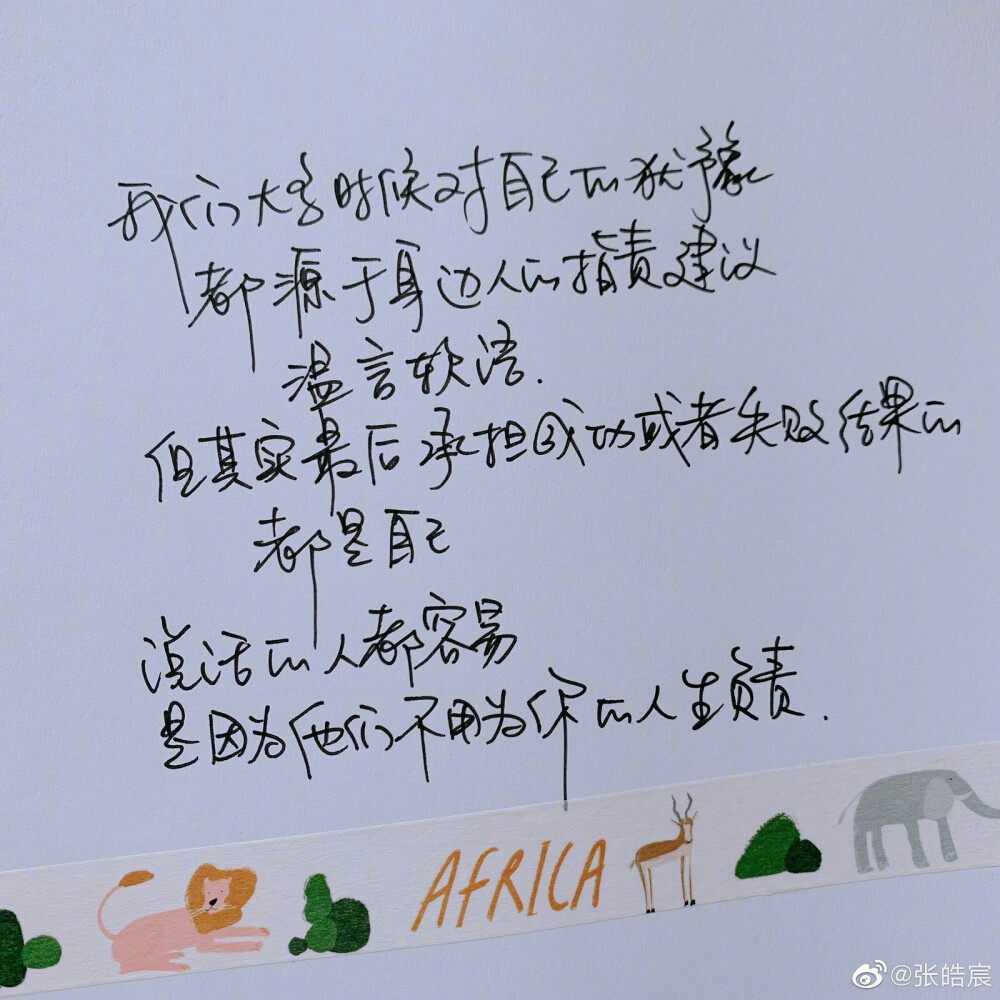 我们大多时候对自己的犹豫
都源于身边人的指责建议
温言软语.
但其实最后承担成功或者失败结果的
都是自己
说话的人都容易
是因为他们不用为你的人生负责.
AFRICA
@张皓宸